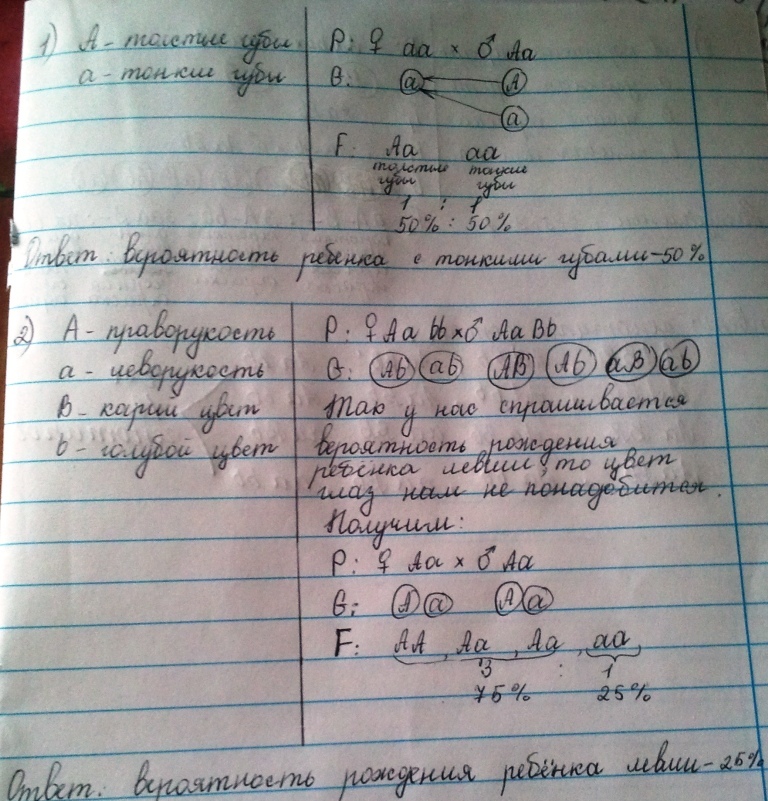 1) А - толстые губы
а - тонкие губы
Р: ♀ аа × ♂ Аа
G: а А
а
F: Аа аа
толстые тонкие
губы губы
1 : 1
50% : 50%
Ответ: вероятность ребенка с тонкими губами - 50%
2) А - праворукость
а - леворукость
В - карий цвет
b - голубой цвет
Р: ♀ Аа bb × ♂ Аа Bb
G: Ab ab AB Ab aB ab
Так у нас спрашивается
вероятность рождения
ребёнка левши, то цвет
глаз нам не понадобится.
Получим:
Р: ♀ Аа × ♂ Аа
G: А а А а
F: АА, Аа, Аа, аа,
3 : 1
75% 25%
Ответ: вероятность рождения ребёнка левши - 25%